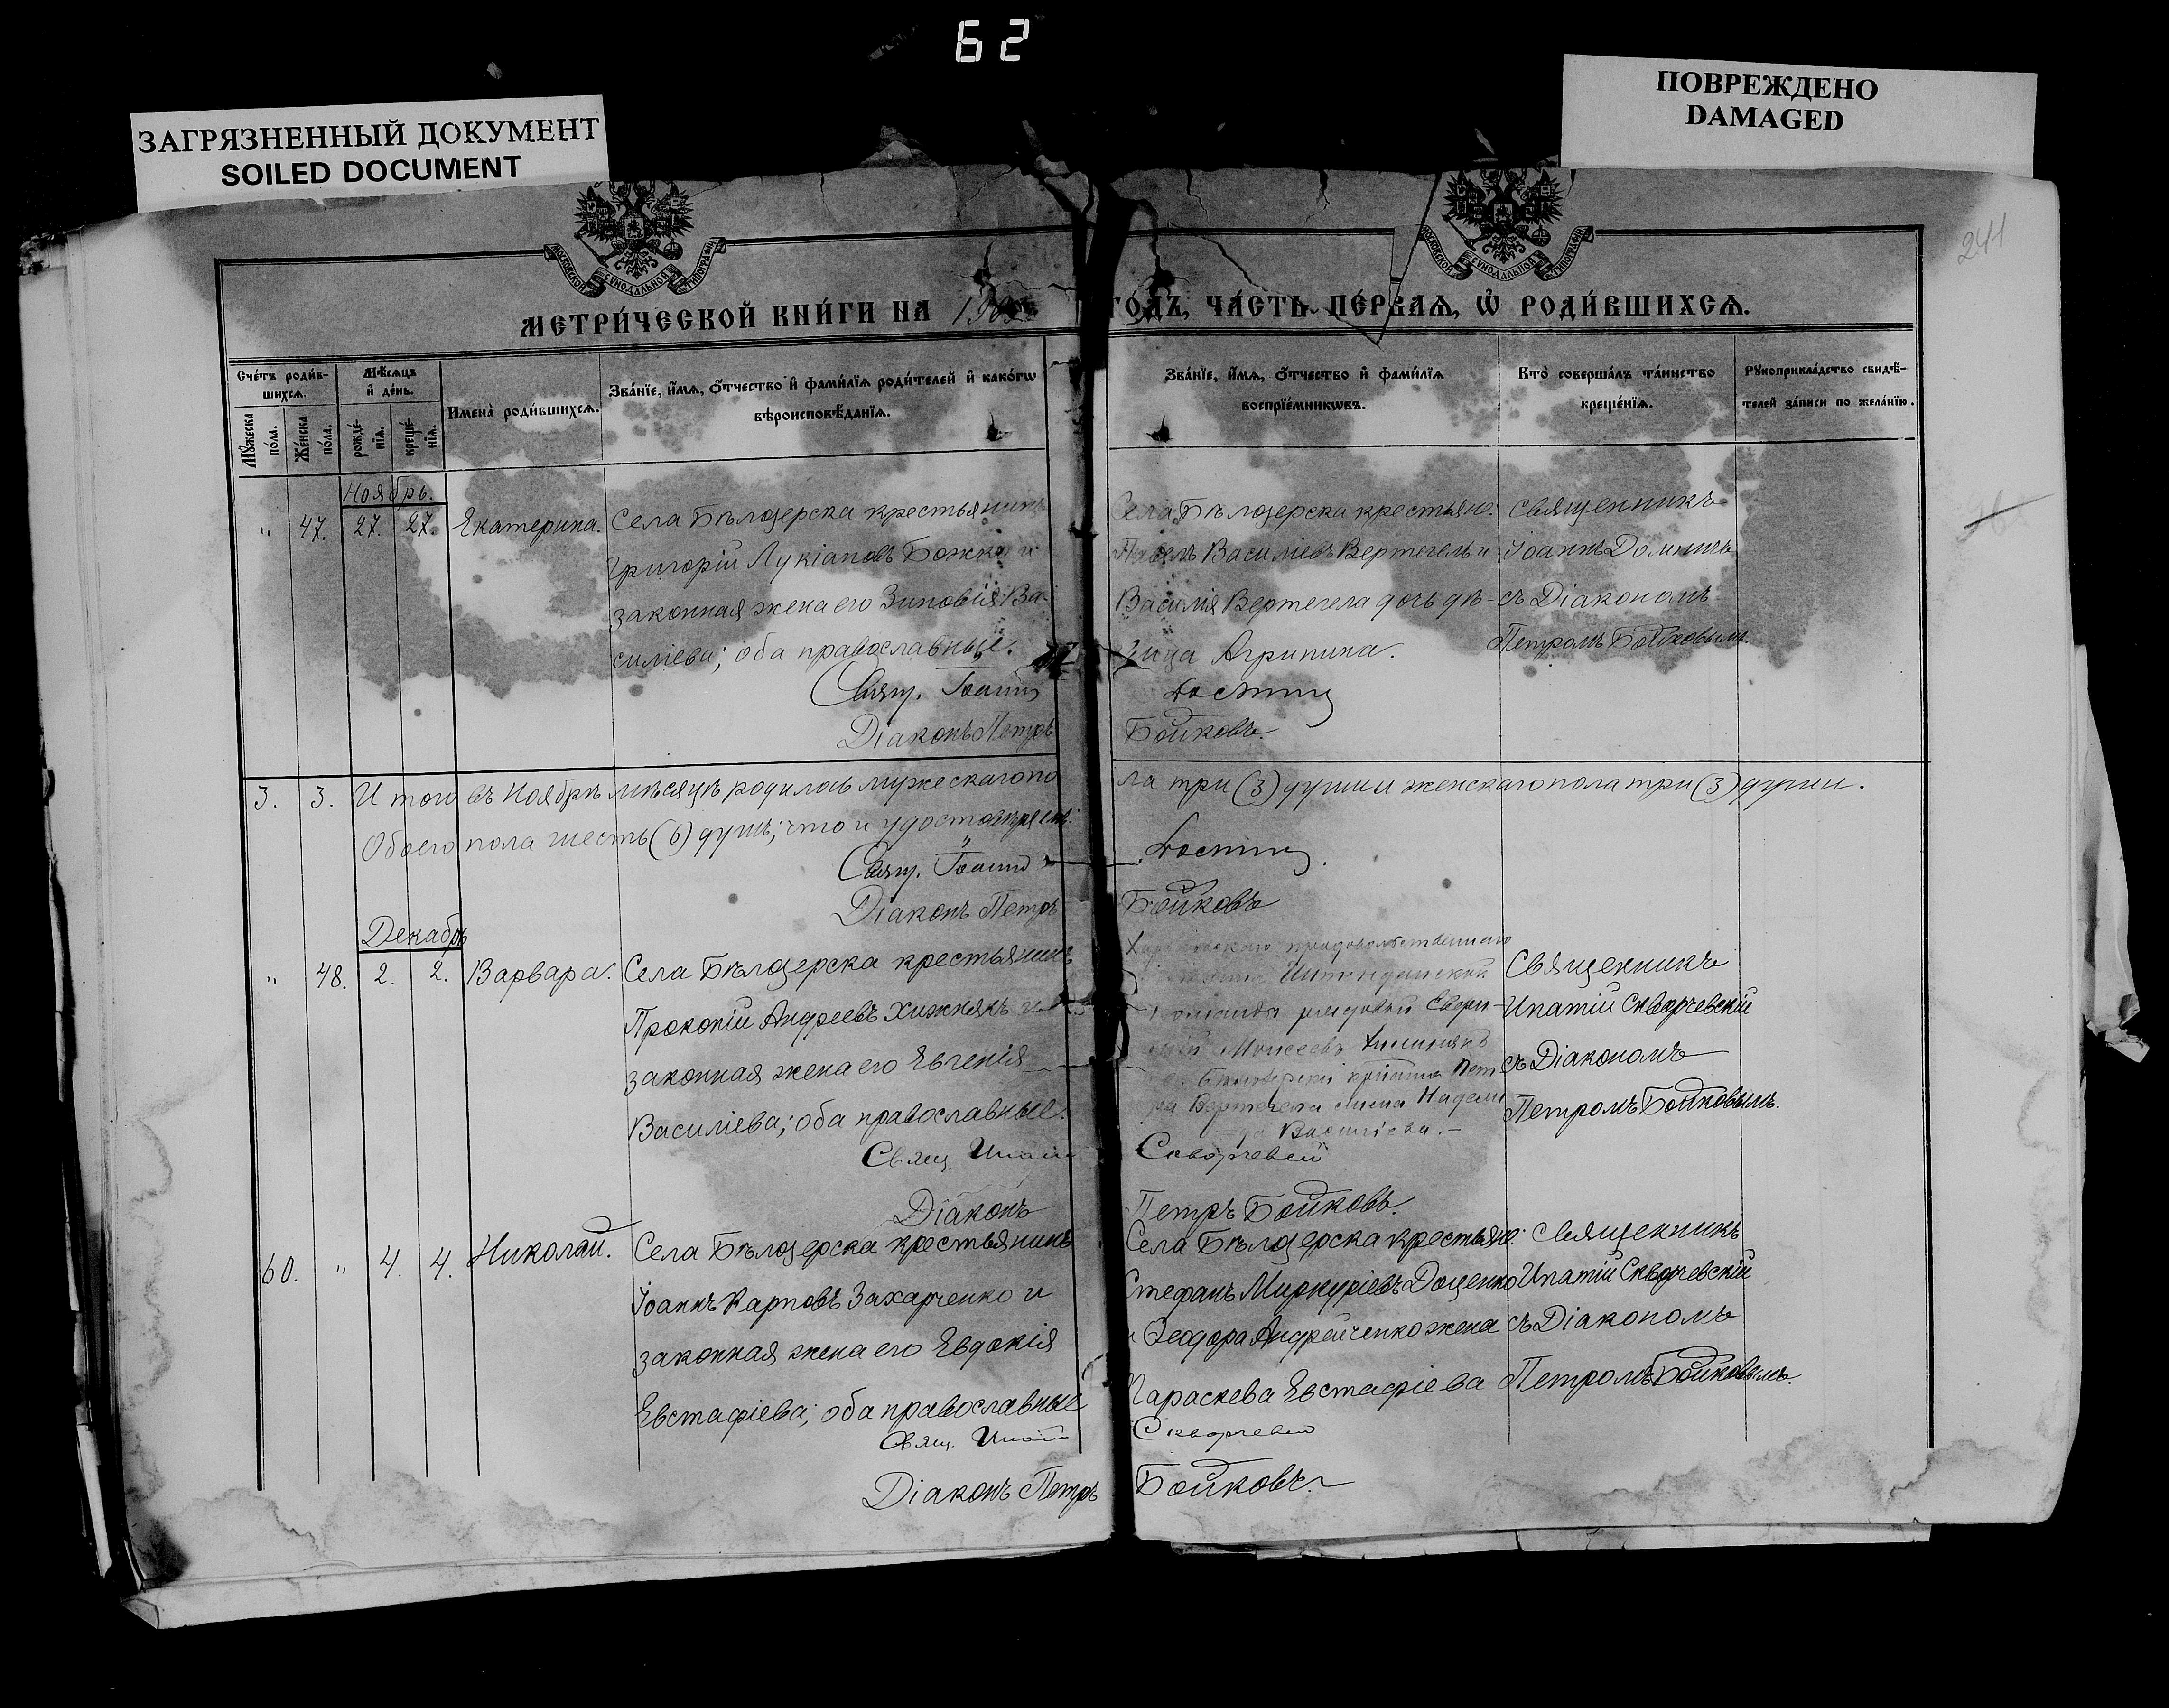 62
ЗАГРЯЗНЕННЫЙ ДОКУМЕНТ
SOILED DOCUMENT
ПОВРЕЖДЕНО
DAMAGED
241
МОСКОВСКОЙ СѴНОДАЛЬНОЙ ТИПОГРАФІИ
МОСКОВСКОЙ СѴНОДАЛЬНОЙ ТИПОГРАФІИ
МЕТРИ́ЧЕСКОЙ КНИ́ГИ НА 190
ГОДЪ, ЧА́СТЬ ПЕ́РВАѦ, Ѡ҆ РОДИ́ВШИХСѦ.
Сче́тъ роди́в-
шихсѧ.
Мꙋ́жеска по́ла.
Же́нска по́ла.
Мѣ́сѧцъ и҆ де́нь.
рожде́-нїѧ.
креще́-нїѧ.
И҆мена̀ роди́вшихсѧ.
Зва́нїе, и҆́мѧ, ѻ҆́тчество и҆ фами́лїѧ роди́телей и҆ како́гѡ
вѣроисповѣ́данїѧ.
Зва́нїе, и҆́мѧ, ѻ҆́тчество и҆ фами́лїѧ
воспрїе́мникѡвъ.
Кто̀ соверша́лъ та́инство
креще́нїѧ.
Рꙋкоприкла́дство свидѣ́-
телей за́писи по жела́нїю.
Ноябрь.
" 47. 27. 27. Екатерина. Села Бѣлозерска крестьянинъ
Григорій Лукіановъ Божко и
законная жена его Зиновія Ва-
силіева; оба православные.
Свящ. Іоаннъ
Діаконъ Петръ
Села Бѣлозерска крестьяне:
Павелъ Василіевъ Вертегелъ и
Василія Вертегела дочь дѣ-
вица Агрипина.
Бойковъ.
Священникъ
Іоаннъ
съ Діакономъ
Петромъ Бойковымъ.
3. 3. Итого въ Ноябрѣ мѣсяцѣ родилось мужескаго по
ла три (3) души и женскаго пола три (3) души.
Обоего пола шесть (6) душъ; что и удостовѣряемъ:
Свящ. Іоаннъ
Діаконъ Петръ
Бойковъ
Декабрь
" 48. 2. 2. Варвара. Села Бѣлозерска крестьянинъ
Прокопій Андреевъ Хижнякъ и
законная жена его Евгенія
Василіева; оба православные.
Свящ. Ипатій
Діаконъ
продовольственнаго
команды рядовой
Моисеевъ
Пет
ра Вертегела жена
Василіева.
Скворчевскій
Петръ Бойковъ.
Священникъ
Ипатій Скворчевскій
съ Діакономъ
Петромъ Бойковымъ.
60. " 4. 4. Николай. Села Бѣлозерска крестьянинъ
Іоаннъ Карповъ Захарченко и
законная жена его Евдокія
Евстафіева; оба православные
Свящ. Ипатій
Діаконъ Петръ
Села Бѣлозерска крестьяне:
Стефанъ Миркуріевъ Доценко
и Ѳеодора Андрейченко жена
Параскева Евстафіева
Скворчевскій
Бойковъ.
Священникъ
Ипатій Скворчевскій
съ Діакономъ
Петромъ Бойковымъ.